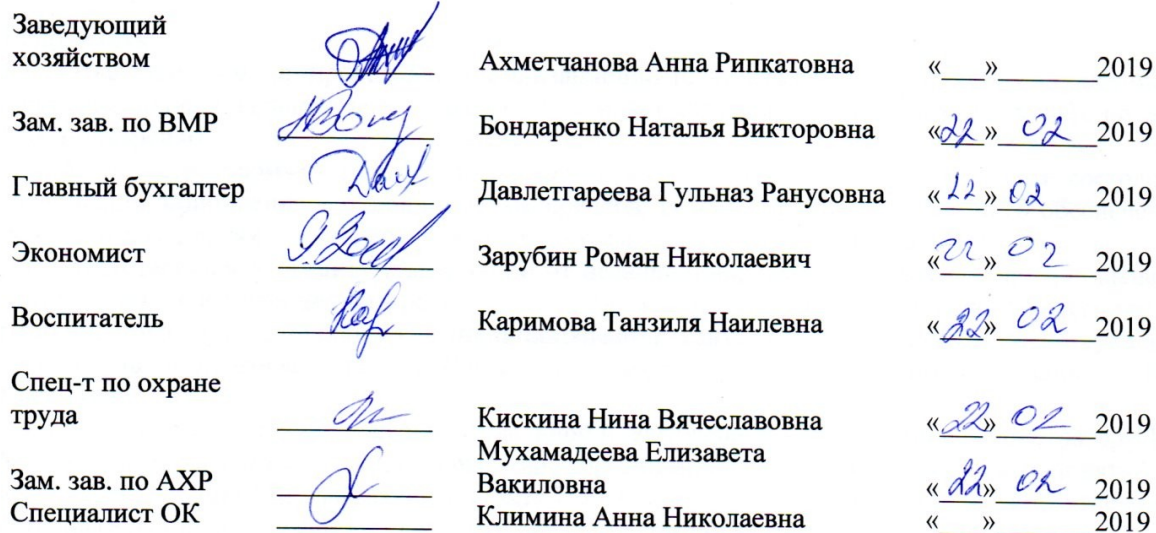 Заведующий
хозяйством Ахметчанова Анна Рипкатовна «___»________2019
Зам. зав. по ВМР Бондаренко Наталья Викторовна «22» 02 2019
Главный бухгалтер Давлетгареева Гульназ Ранусовна «22» 02 2019
Экономист Зарубин Роман Николаевич «22» 02 2019
Воспитатель Каримова Танзиля Наилевна «22» 02 2019
Спец-т по охране
труда Кискина Нина Вячеславовна «22» 02 2019
Мухамадеева Елизавета
Зам. зав. по АХР Вакиловна «22» 02 2019
Специалист ОК Климина Анна Николаевна « » 2019